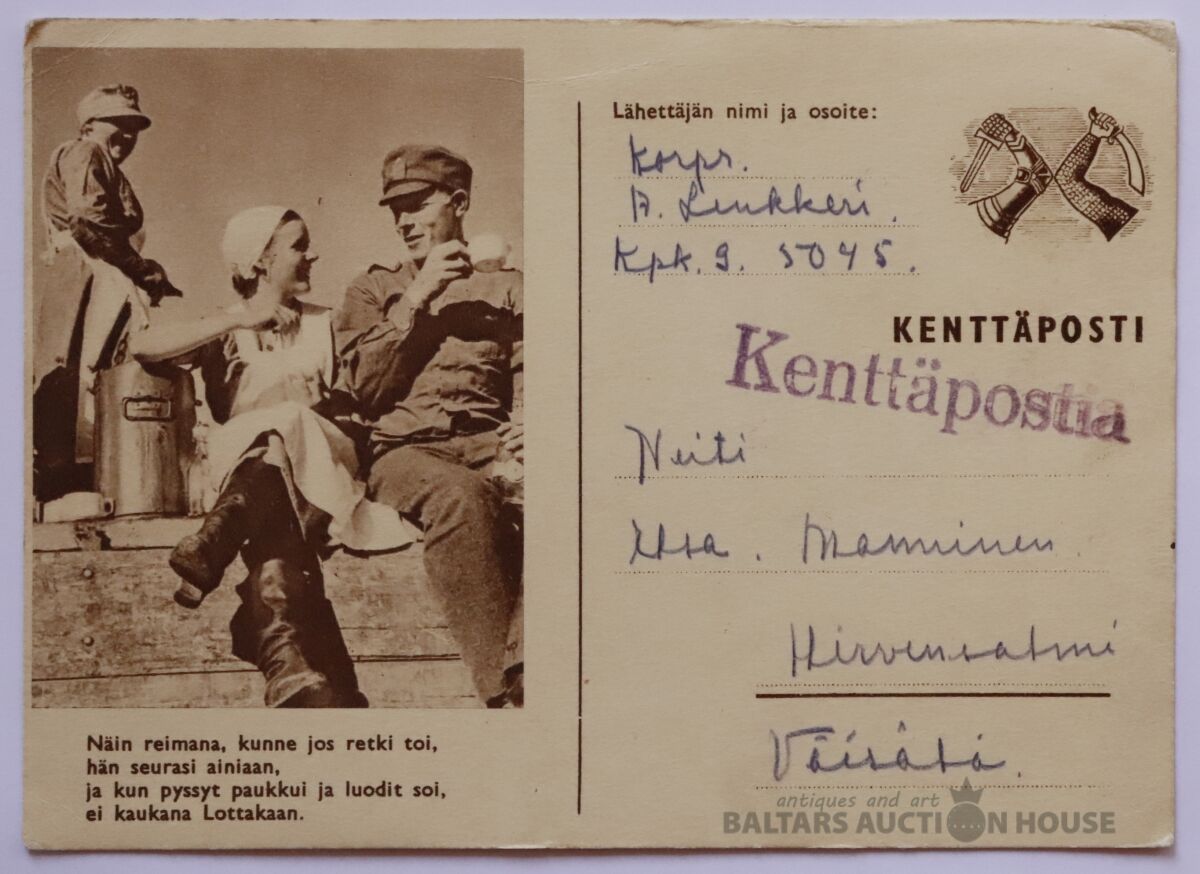 Lähettäjän nimi ja osoite:
Korpr.
A. Linkkeri.
Kpk. 9. 5045.
KENTTÄPOSTI
Kenttäpostia
Neiti
Elsa. Manninen
Hirvensalmi
Väisälä.
Näin reimana, kunne jos retki toi,
hän seurasi ainiaan,
ja kun pyssyt paukkui ja luodit soi,
ei kaukana Lottakaan.
antiques and art
BALTARS AUCTION HOUSE